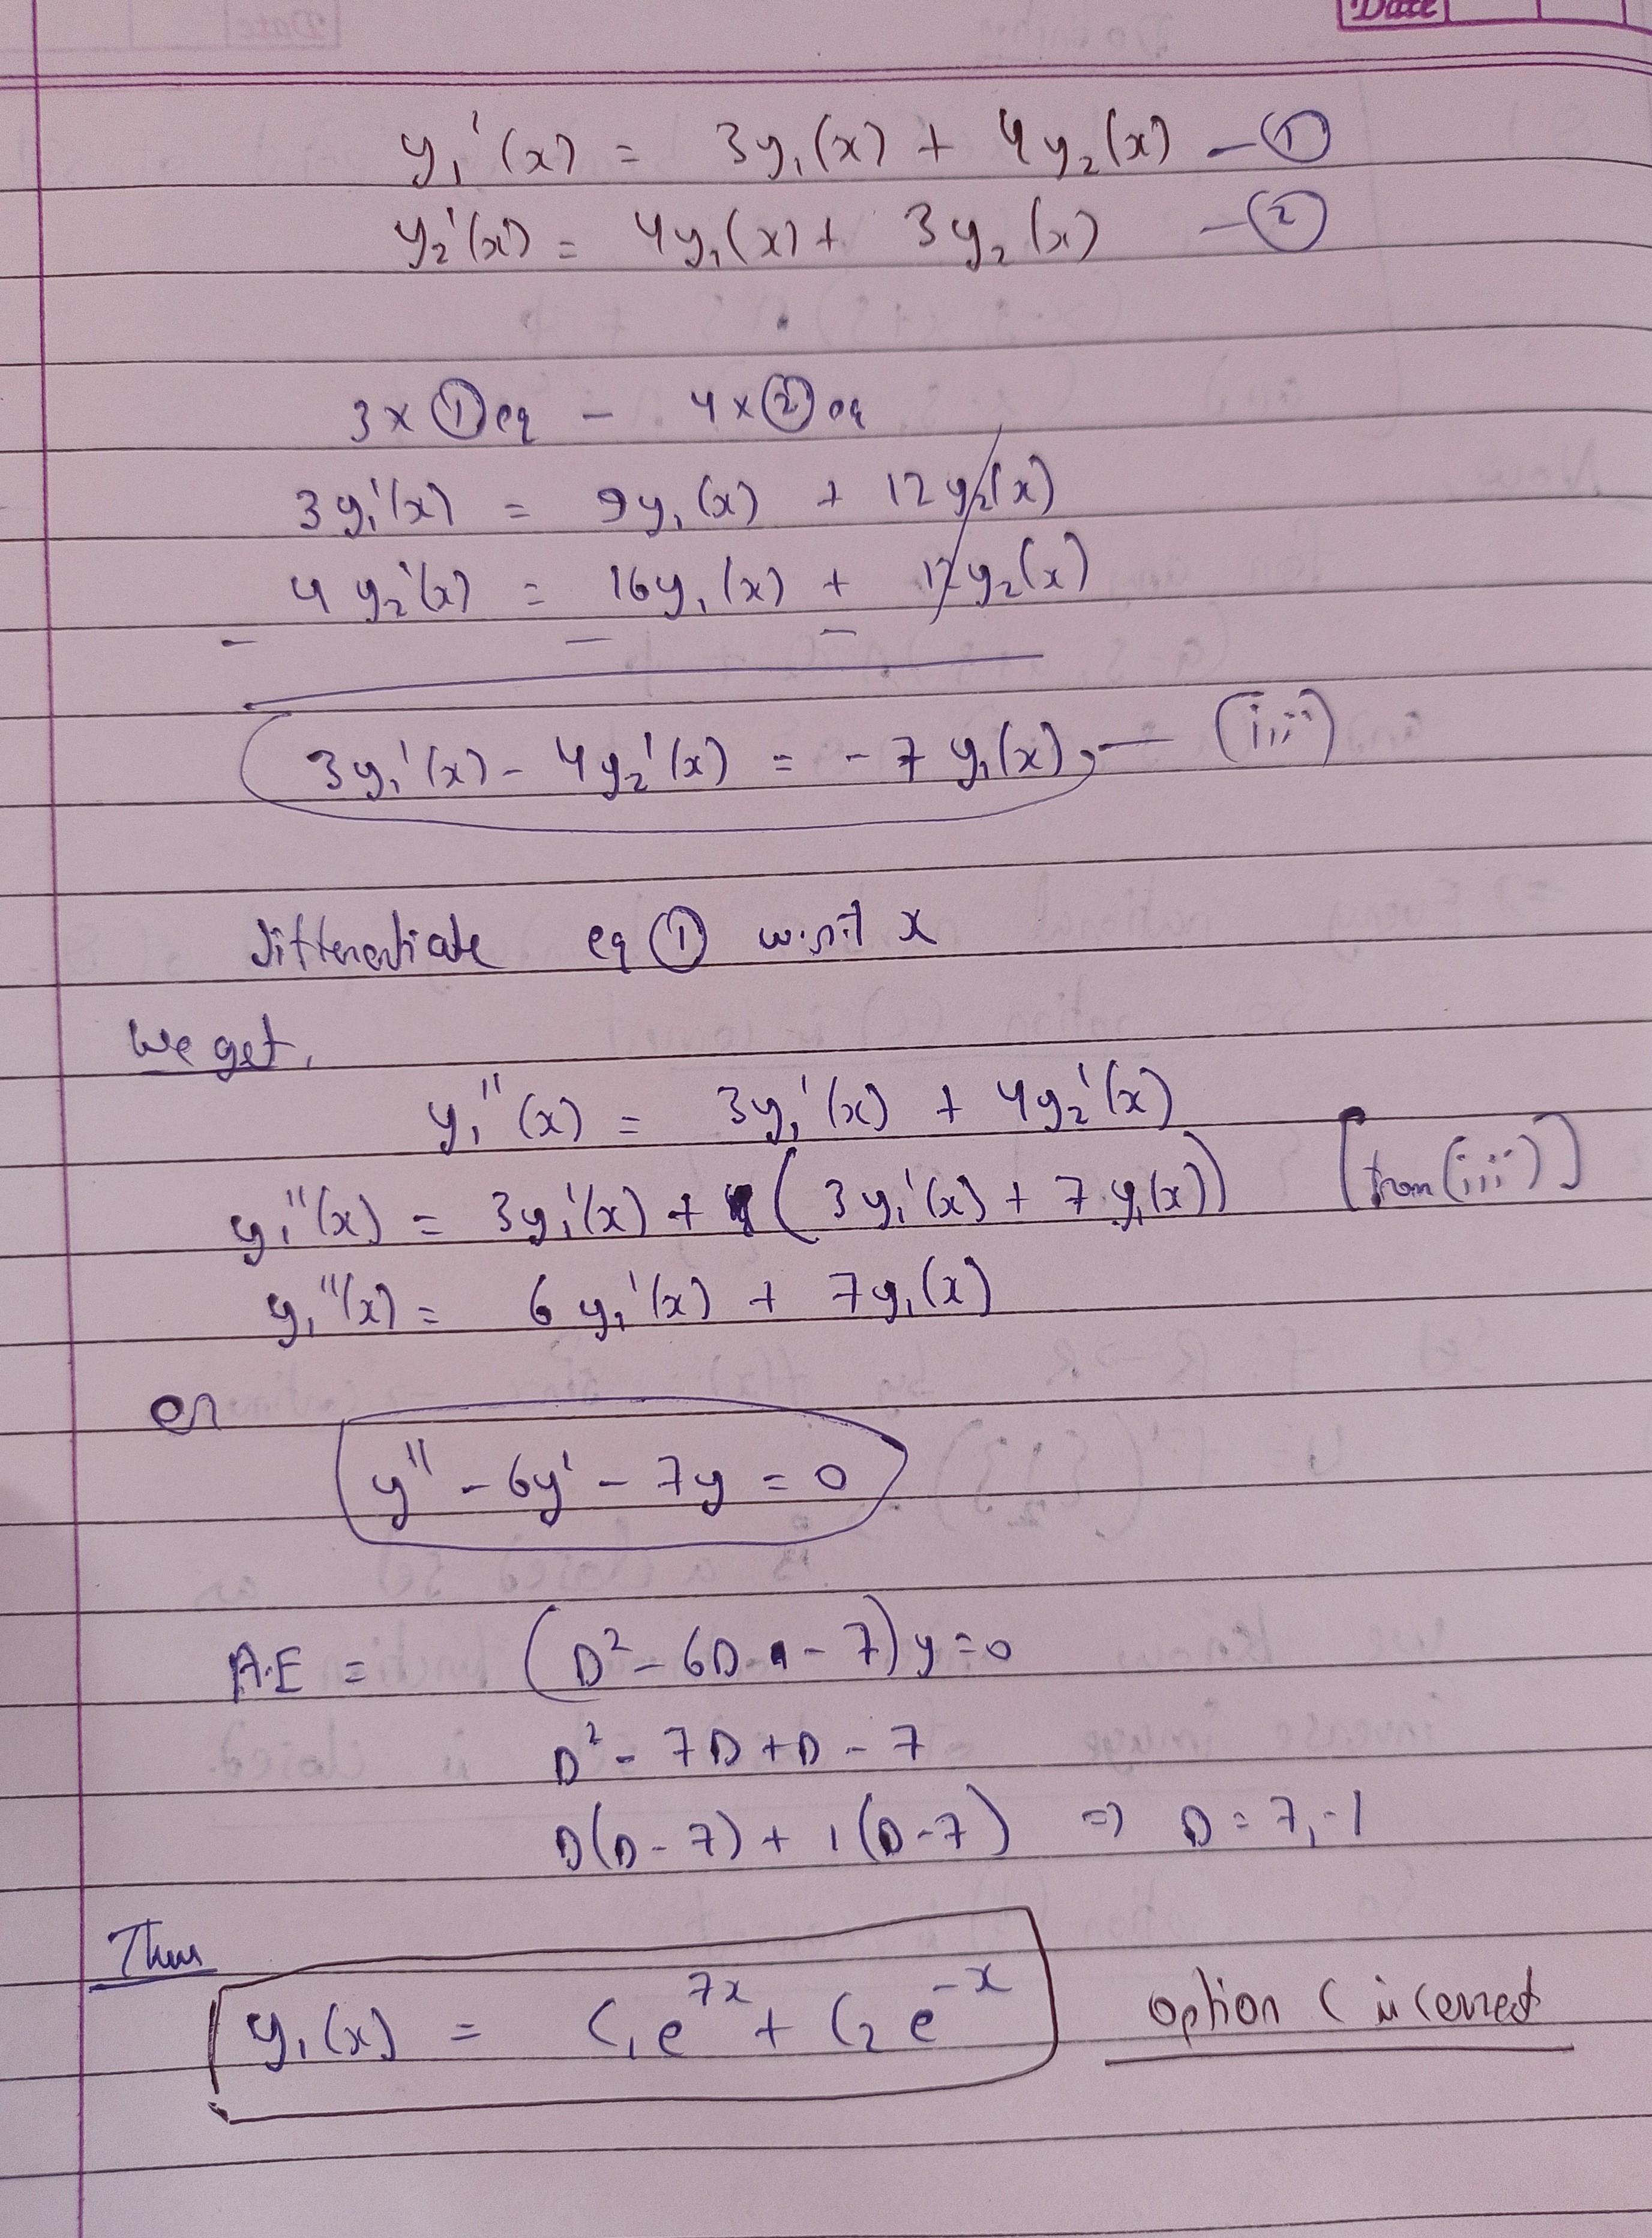 Date
y₁'(x) = 3y₁(x) + 4y₂(x) — ①
y₂'(x) = 4y₁(x) + 3y₂(x) — ②
3 x ① eq - 4 x ② eq
3y₁'(x) = 9y₁(x) + 12y₂(x)
4y₂'(x) = 16y₁(x) + 12y₂(x)
- - -
3y₁'(x) - 4y₂'(x) = -7y₁(x) — (iii)
differentiate eq ① w.r.t x
We get,
y₁''(x) = 3y₁'(x) + 4y₂'(x)
y₁''(x) = 3y₁'(x) + (3y₁'(x) + 7y₁(x)) [from (iii)]
y₁''(x) = 6y₁'(x) + 7y₁(x)
or
y'' - 6y' - 7y = 0
A.E = (D² - 6D - 7)y = 0
D² - 7D + D - 7
D(D-7) + 1(D-7) ⇒ D = 7, -1
Thus
y₁(x) = C₁e⁷ˣ + C₂e⁻ˣ option C is correct